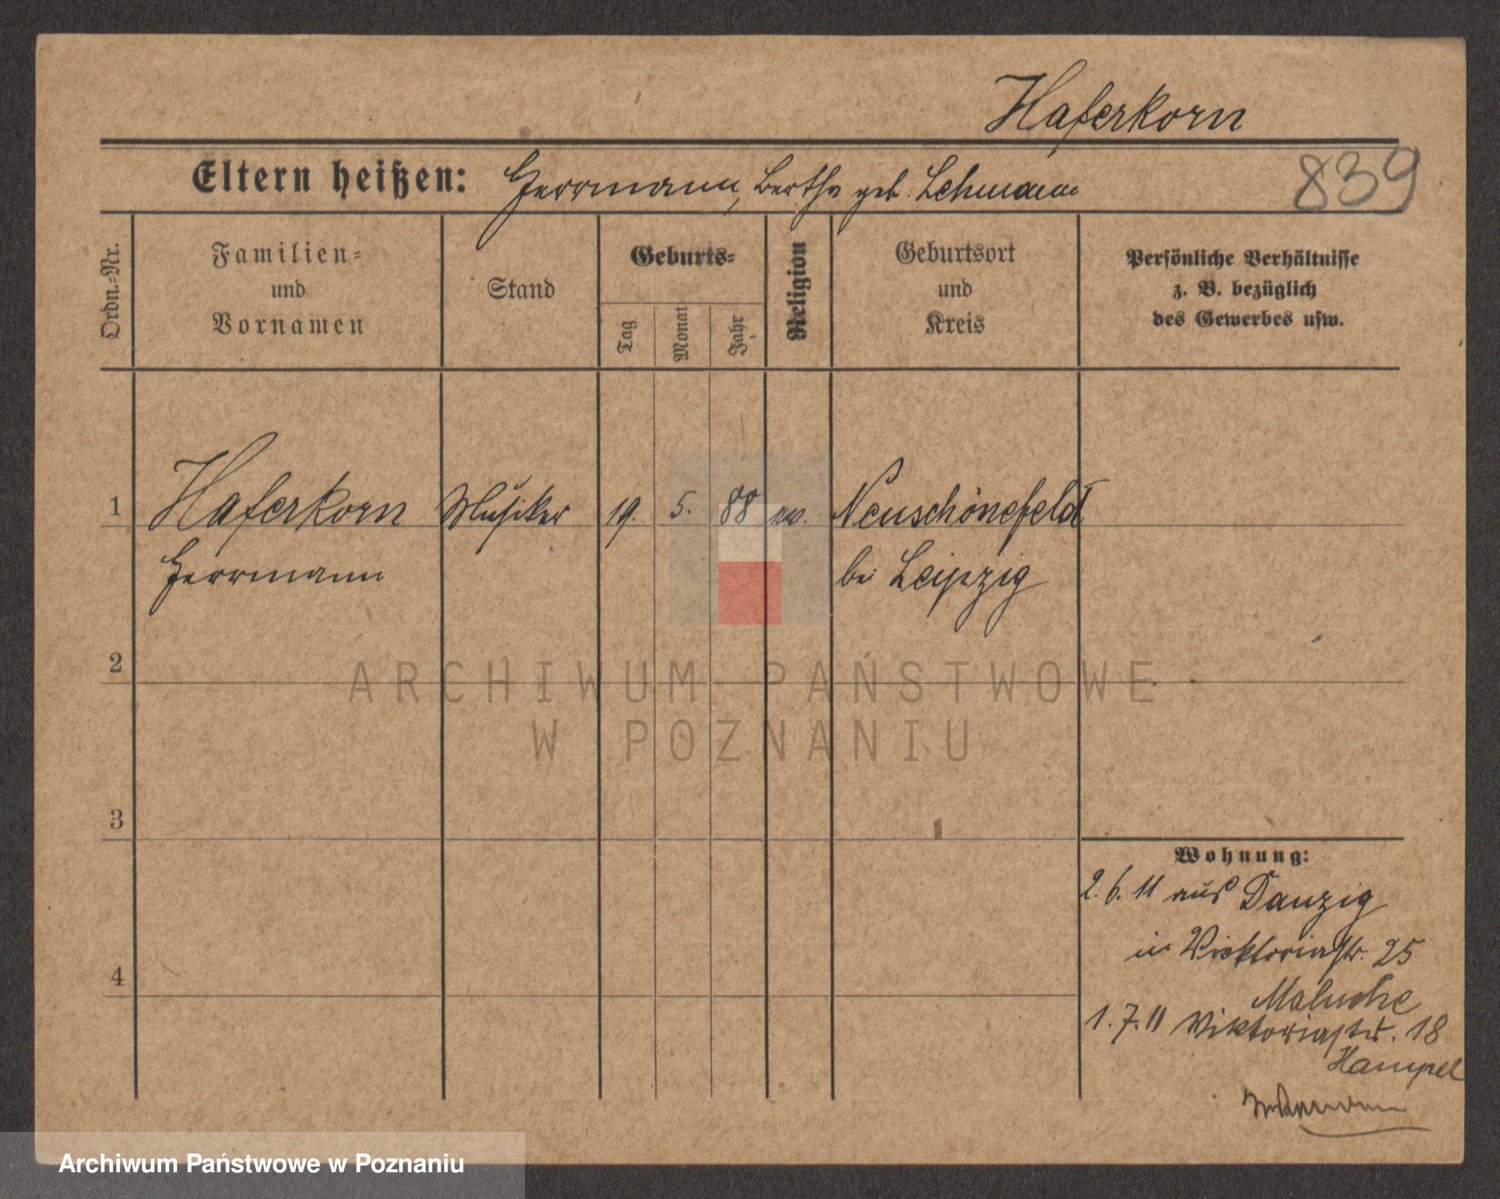 Haferkorn
839
Eltern heißen: Herrmann, Bertha geb. Lehmann
Ordn.-Nr.
Familien-
und
Vornamen
Stand
Geburts-
Tag
Monat
Jahr
Religion
Geburtsort
und
Kreis
Persönliche Verhältnisse
z. B. bezüglich
des Gewerbes usw.
1 Haferkorn Musiker 19. 5. 88 ev. Neuschönefeld
Herrmann bei Leipzig
2
3
4
Wohnung:
2. 6. 11 aus Danzig
in Viktoriastr. 25
Maluche
1. 7. 11 Viktoriastr. 18
Hampel
ARCHIWUM PAŃSTWOWE
W POZNANIU
Archiwum Państwowe w Poznaniu